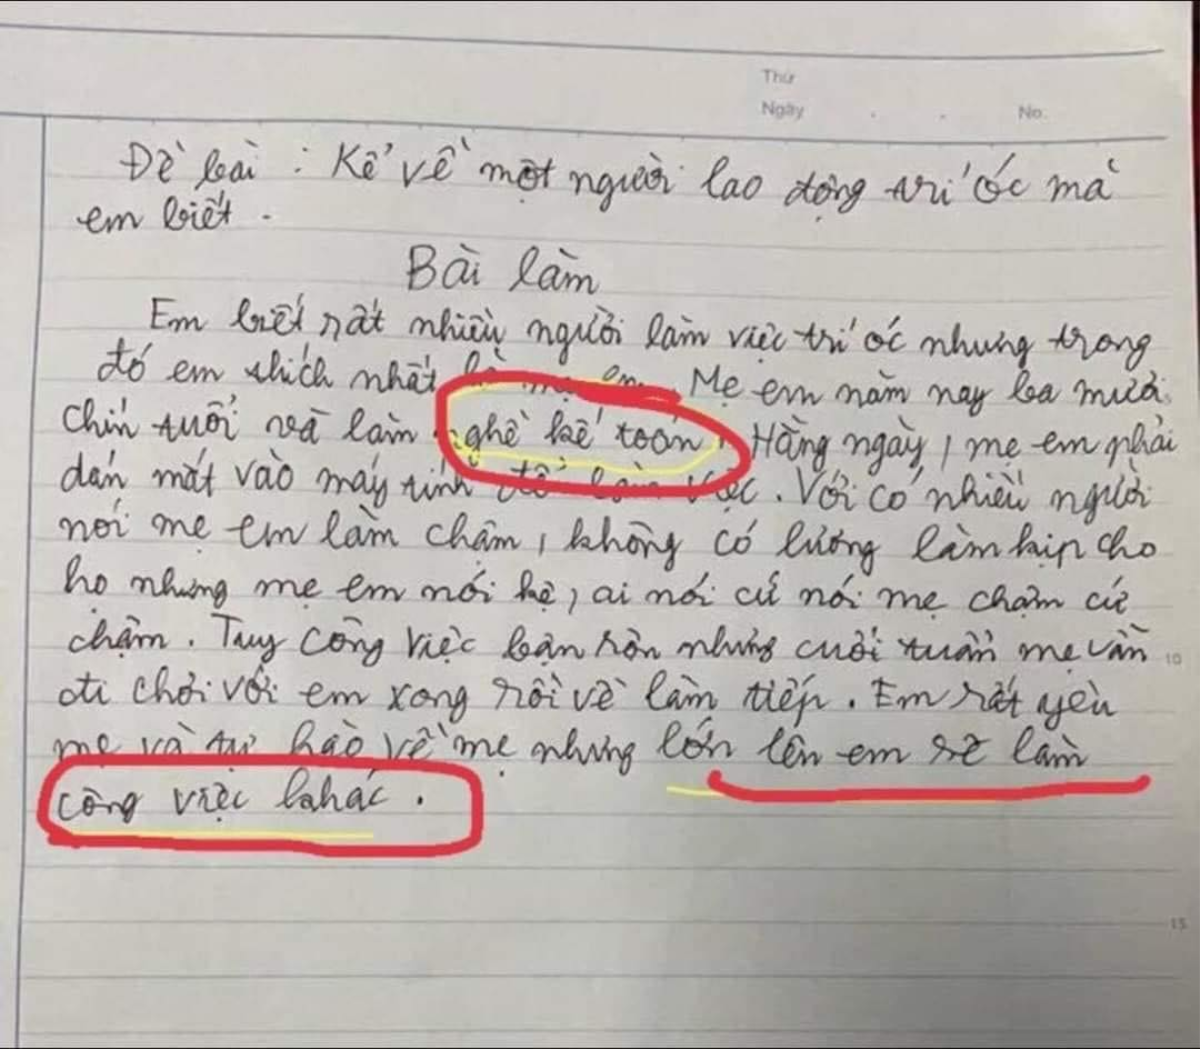 Thứ
Ngày . . No.
Đề bài : Kể về một người lao động trí óc mà
em biết.
Bài làm
Em biết rất nhiều người làm việc trí óc nhưng trong
đó em thích nhất là mẹ em. Mẹ em năm nay ba mươi
chín tuổi và làm nghề kế toán. Hằng ngày, mẹ em phải
dán mắt vào máy tính để làm việc. Với có nhiều người
nói mẹ em làm chậm, không có lương làm kịp cho
họ nhưng mẹ em nói kệ, ai nói cứ nói mẹ chậm cứ
chậm. Tuy công việc bận rộn nhưng cuối tuần mẹ vẫn
đi chơi với em xong rồi về làm tiếp. Em rất yêu
mẹ và tự hào về mẹ nhưng lớn lên em sẽ làm
công việc khác.
10
15